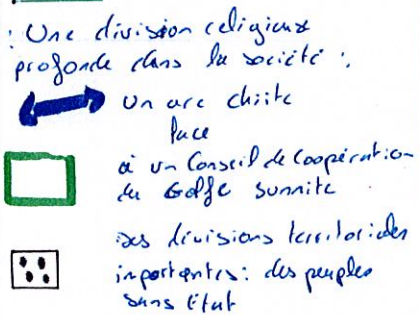 : Une division religieuse
profonde dans la société :
un arc chiite
face
à un Conseil de Coopération
du Golfe sunnite
Des divisions territoriales
importantes : des peuples
sans État